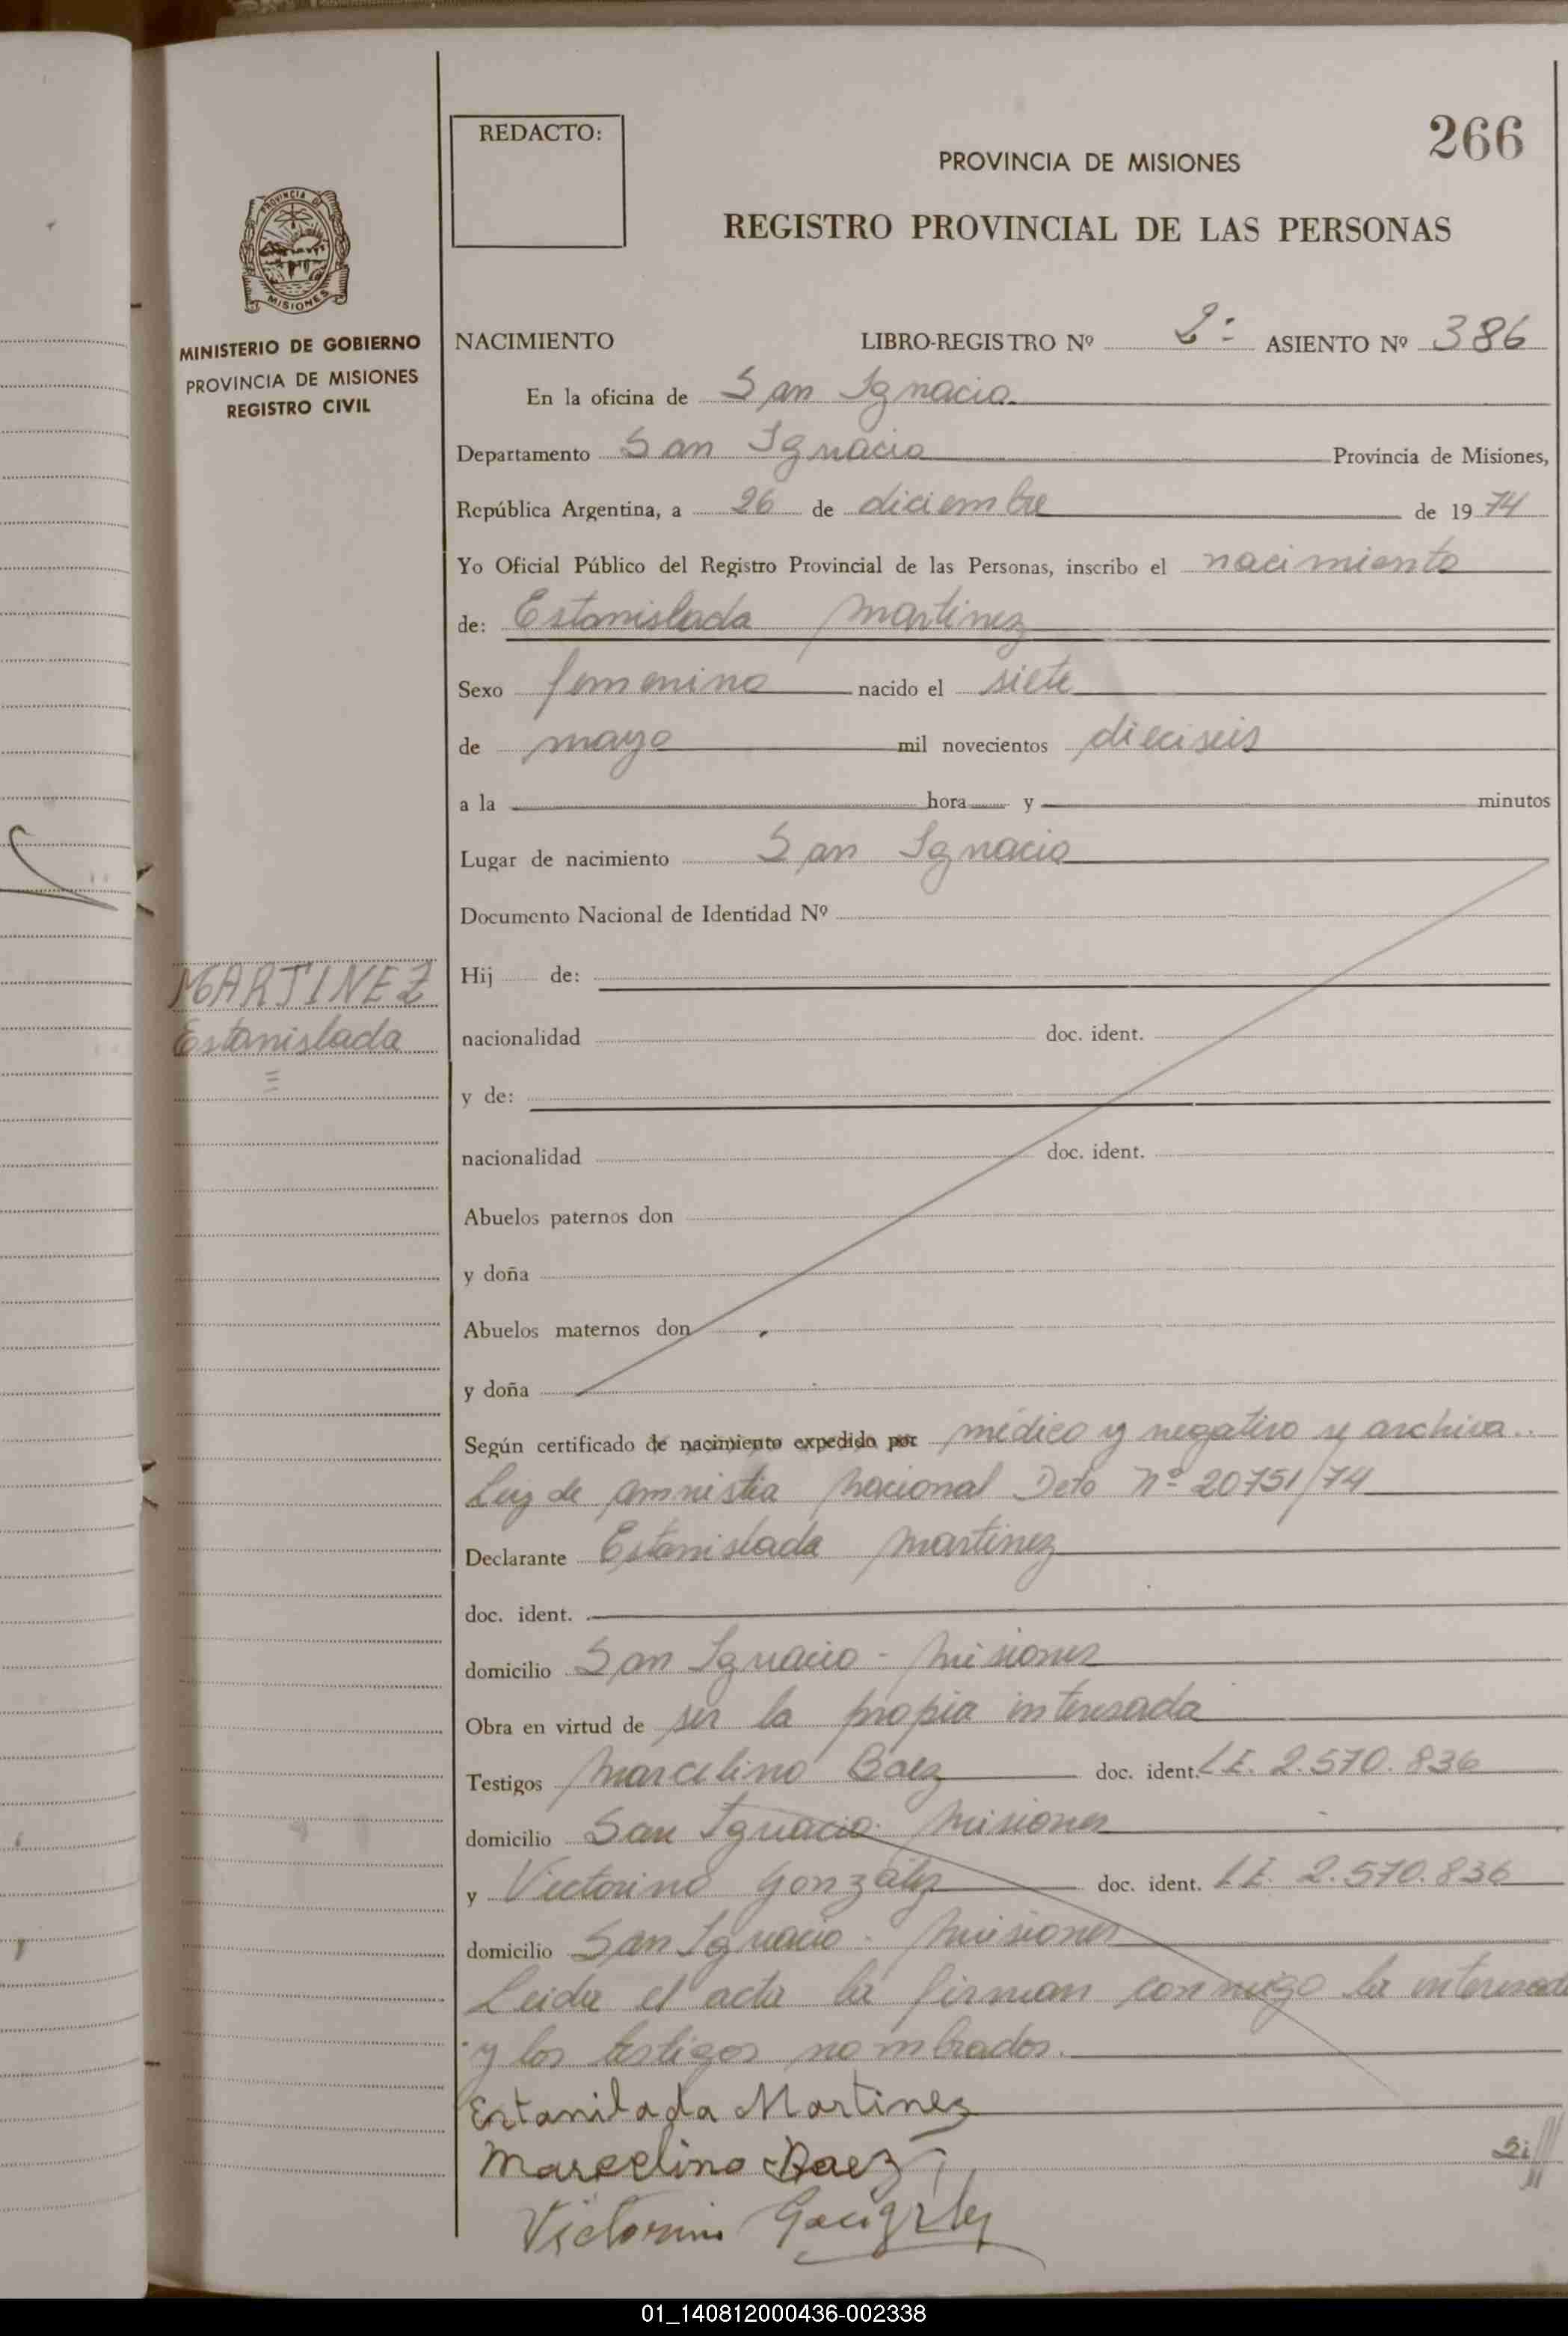 266
REDACTO:
PROVINCIA DE MISIONES
REGISTRO PROVINCIAL DE LAS PERSONAS
PROVINCIA DE
MISIONES
MINISTERIO DE GOBIERNO
PROVINCIA DE MISIONES
REGISTRO CIVIL
NACIMIENTO LIBRO-REGISTRO Nº 2º ASIENTO Nº 386
En la oficina de San Ignacio
Departamento San Ignacio Provincia de Misiones,
República Argentina, a 26 de diciembre de 1974
Yo Oficial Público del Registro Provincial de las Personas, inscribo el nacimiento
de: Estanislada Martinez
Sexo femenino nacido el siete
de mayo mil novecientos dieciseis
a la hora y minutos
Lugar de nacimiento San Ignacio
Documento Nacional de Identidad Nº
MARTINEZ
Estanislada
Hij de:
nacionalidad doc. ident.
y de:
nacionalidad doc. ident.
Abuelos paternos don
y doña
Abuelos maternos don
y doña
Según certificado de nacimiento expedido por médico y negativo se archiva..
Ley de amnistia Nacional Deto Nº 20751/74
Declarante Estanislada Martinez
doc. ident.
domicilio San Ignacio - Misiones
Obra en virtud de ser la propia interesada
Testigos Marcelino Baez doc. ident. L.E. 2.570.836
domicilio San Ignacio - Misiones
y Victorino González doc. ident. L.E. 2.570.836
domicilio San Ignacio - Misiones
Leida el acta la firman conmigo la interesada
y los testigos nombrados.
Estanilada Martinez
Marcelino Baez
Victorino
01_140812000436-002338